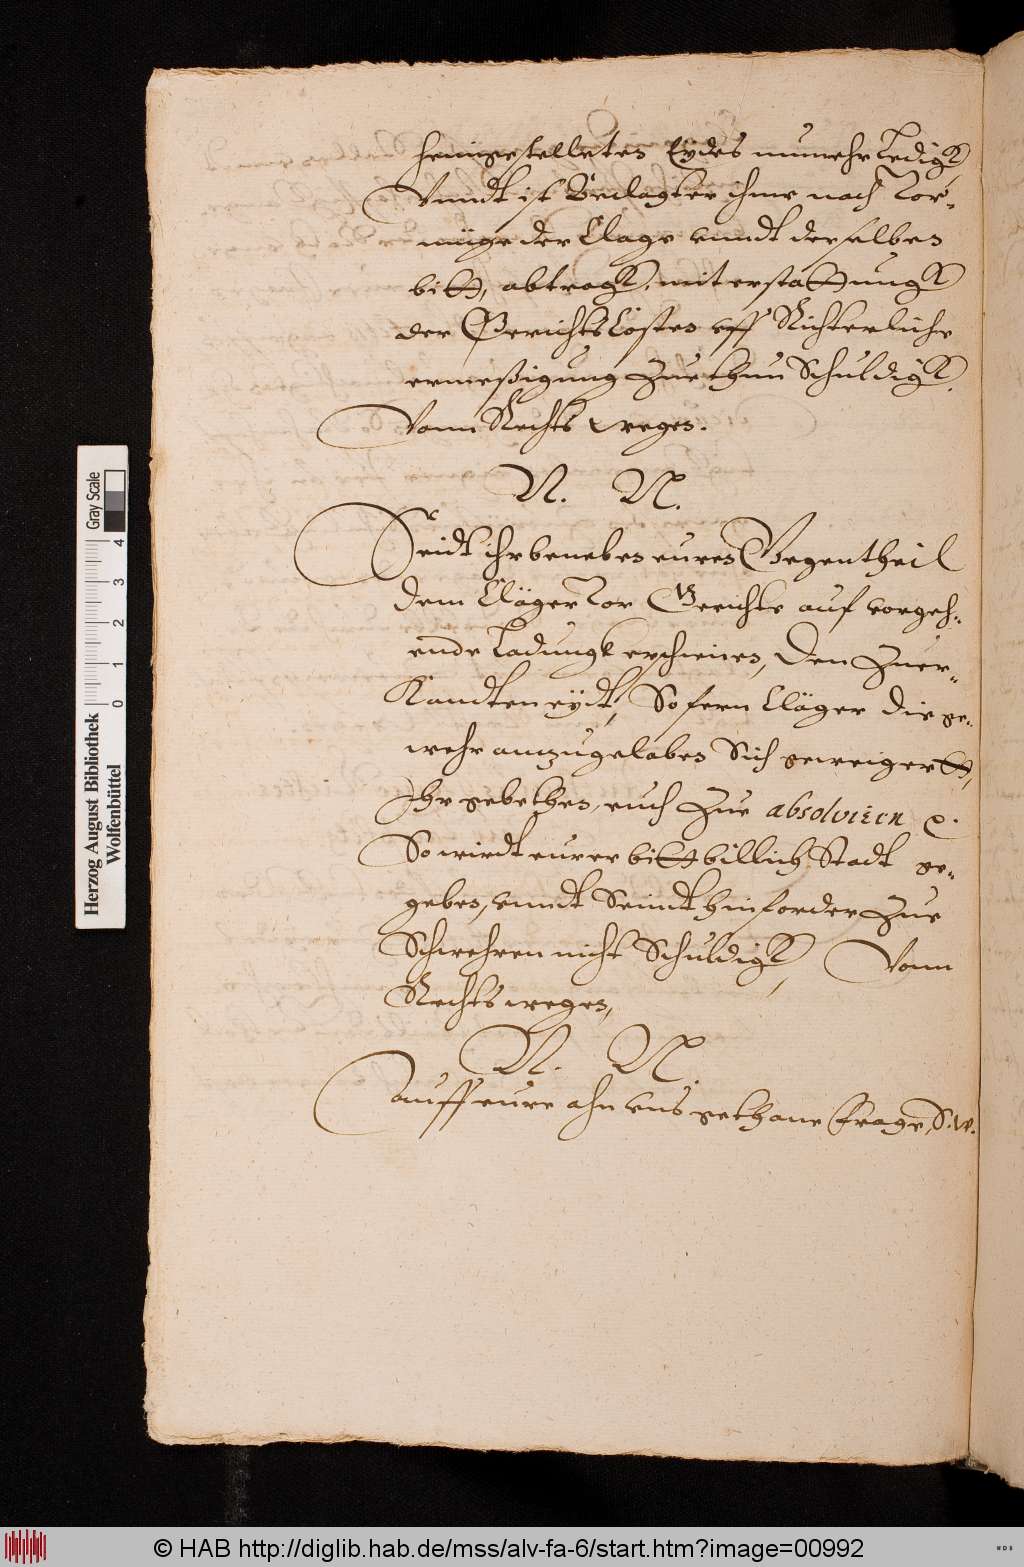 heimgestelleten Eydes nunmehr Ledigk
Vnndt ist Beclagter ihme nach Vor-
müge der Clage vnndt derselben
bitt, abtragk, mit erstattungk
der Gerichts Cösten vff Richterliche
ermeßigung Zue thun Schuldigk.
Vonn Rechts wegen.
N. N.
Seidt ihr beneben euren Gegentheil
dem Cläger Vor Gerichte auf vorgeh-
ende Ladungk erschienen, Den Zuer-
Kandten eydt, So fern Cläger die ge-
wehr anzugeloben Sich geweigertt,
Ihr gebethen, euch Zue absolviren ꝛc.
So wirdt eurer bitt billich Stadt ge-
geben, vnndt Seindt hinforder Zue
Schwehren nicht Schuldigk, Vonn
Rechts wegen,
N. N.
auff eure ahn vns gethane Frage, S. w.
Herzog August Bibliothek
Wolfenbüttel
0 1 2 3 4
Gray Scale
© HAB http://diglib.hab.de/mss/alv-fa-6/start.htm?image=00992
WDB